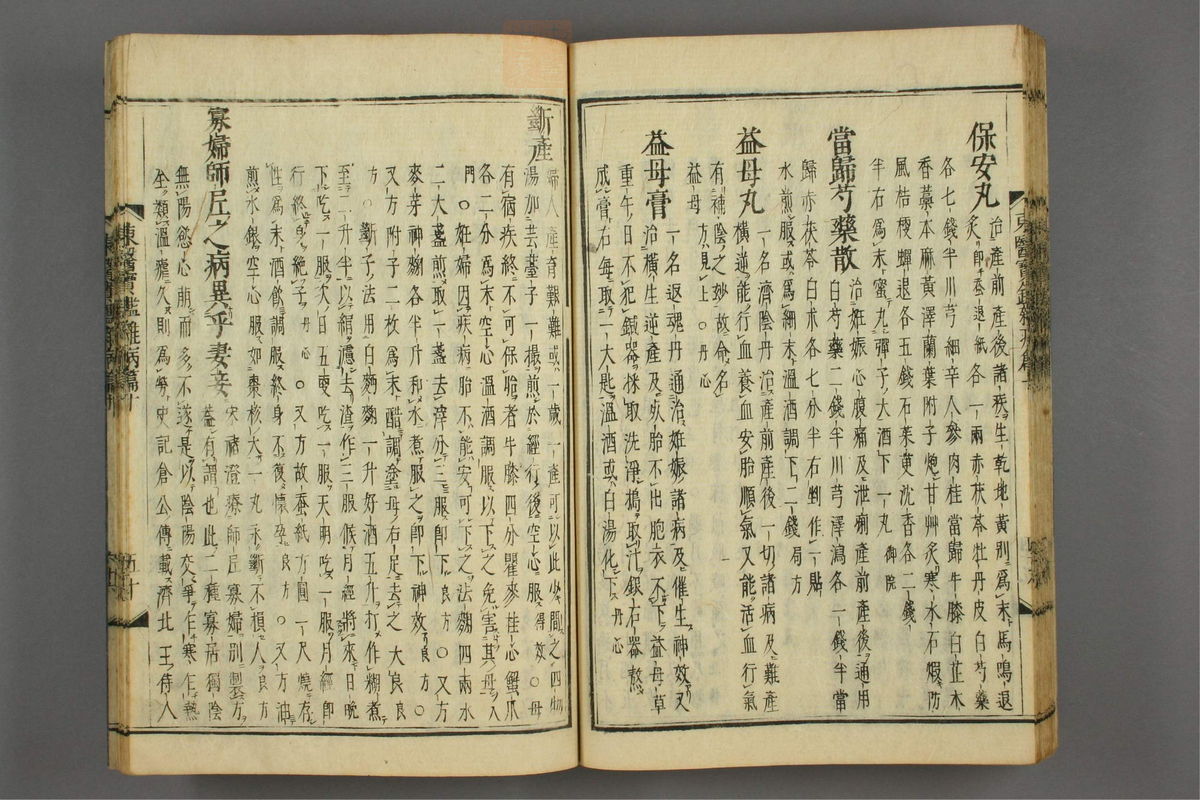 保安丸
治產前產後諸疾生乾地黃別爲末馬鳴退
炙即蚕退紙各一兩赤茯苓牡丹皮白芍藥
各七錢半川芎細辛人參肉桂當歸牛膝白芷木
香藁本麻黃澤蘭葉附子炮甘艸炙寒水石煆防
風桔梗蟬退各五錢石茱萸沈香各二錢
半右爲末蜜丸彈子大酒下一丸御院
當歸芍藥散
治妊娠心腹痛及泄痢產前產後通用
白芍藥二錢半川芎澤瀉各一錢半當
歸赤茯苓白朮各七分半右剉作一貼
水煎服或爲細末溫酒調下二錢局方
益母丸
一名濟陰丹治產前產後一切諸病及難產
橫逆能行血養血安胎順氣又能活血行氣
有補陰之妙故命名
益母方見上○丹心
益母膏
一名返魂丹通治妊娠諸病及催生神效又
治橫生逆產及死胎不出胞衣不下益母草
重午日不犯鐵器採取洗淨搗取汁銀石器熬
成膏右每取一大匙溫酒或白湯化下丹心
斷產
婦人產育難難或一歲一產可以此少間之四物
湯加芸薹子一撮煎於經行後空心服得效○母
有宿疾終不可保胎者牛膝四分瞿麥桂心蟹爪
各二分爲末空心溫酒調服以下之免害其母入
門○妊婦因疾病胎不能安可下之法麴四兩水
二大盞煎取一盞去滓分三服即下良方○又方
麥芽神麴各半斤和水煮服之即下神效良方○
又方附子二枚爲末醋調塗母右足去之大良良
方○斷子法用白麪麴一升好酒五升打作糊煮
至二升半以絹濾去渣作三服候月經將來日晚
下吃一服次日五更吃一服天明吃一服月經即
行終身絕子丹心○又方故蚕紙方圓一尺燒存
性爲末酒飮調服終身不復懷孕良方○又方油
煎水銀空心服如棗核大一丸永斷不損人良方
寡婦師尼之病異乎妻妾
宋褚澄療師尼寡婦別製方
益有謂也此二種寡居獨陰
無陽慾心萌而多不遂是以陰陽交爭乍寒乍熱
全類溫瘧久則爲勞史記倉公傳載濟北王侍人
東醫寶鑑雜病篇十
五十